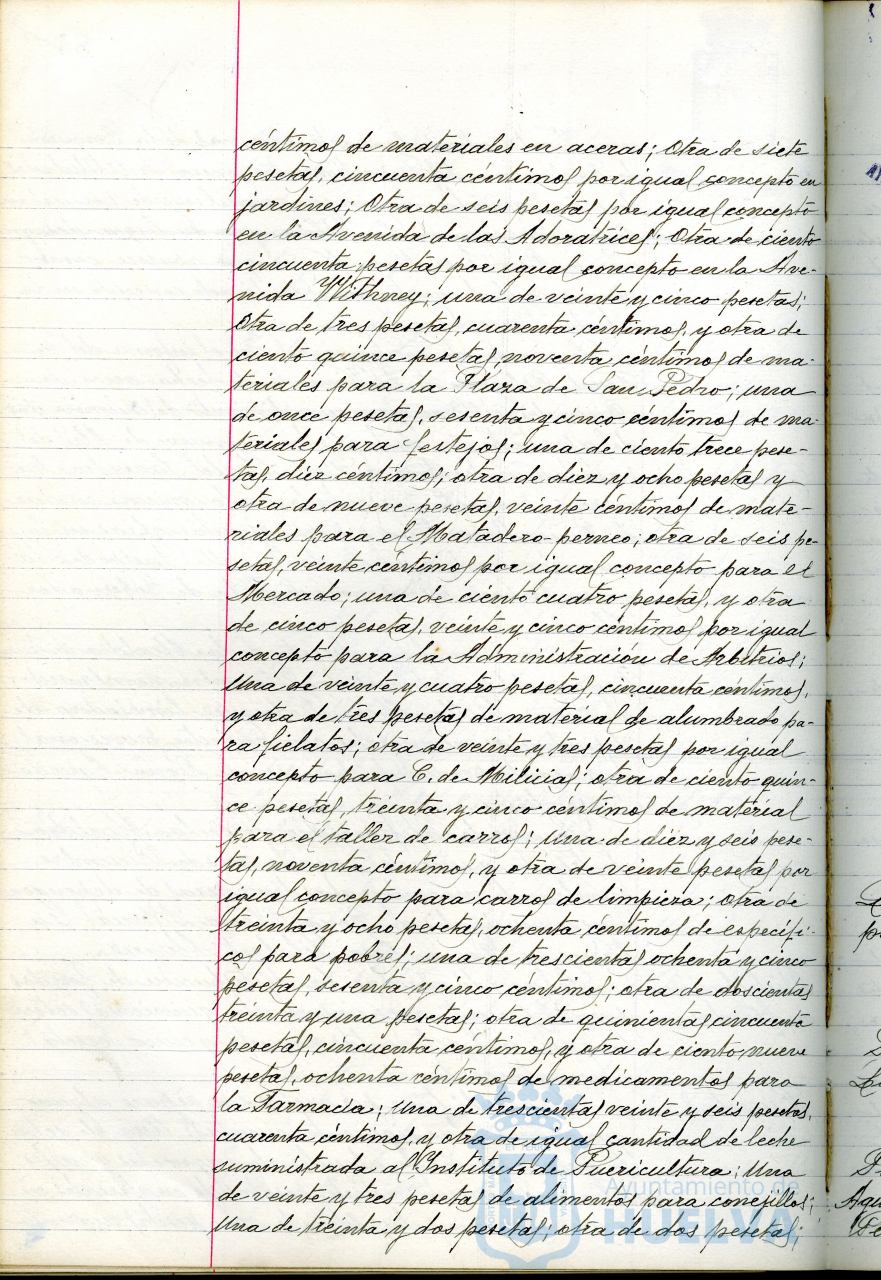 céntimos de materiales en aceras; Otra de siete
pesetas, cincuenta céntimos por igual concepto en
jardines; Otra de seis pesetas por igual concepto
en la Avenida de las Adoratrices; Otra de ciento
cincuenta pesetas por igual concepto en la Ave-
nida Withney; una de veinte y cinco pesetas;
Otra de tres pesetas, cuarenta céntimos, y otra de
ciento quince pesetas, noventa céntimos de ma-
teriales para la Plaza de San Pedro; una
de once pesetas, sesenta y cinco céntimos de ma-
teriales para festejos; una de ciento trece pese-
tas, diez céntimos; otra de diez y ocho pesetas y
otra de nueve pesetas, veinte céntimos de mate-
riales para el Matadero perneo; otra de seis pe-
setas, veinte céntimos por igual concepto para el
Mercado; una de ciento cuatro pesetas, y otra
de cinco pesetas, veinte y cinco céntimos por igual
concepto para la Administración de Arbitrios;
Una de veinte y cuatro pesetas, cincuenta céntimos,
y otra de tres pesetas de material de alumbrado pa-
ra fielatos; otra de veinte y tres pesetas por igual
concepto para C. de Milicias; otra de ciento quin-
ce pesetas, treinta y cinco céntimos de material
para el taller de carros; Una de diez y seis pese-
tas, noventa céntimos, y otra de veinte pesetas por
igual concepto para carros de limpieza; otra de
treinta y ocho pesetas, ochenta céntimos de específi-
cos para pobres; una de trescientas ochenta y cinco
pesetas, sesenta y cinco céntimos; otra de doscientas
treinta y una pesetas; otra de quinientas cincuenta
pesetas, cincuenta céntimos, y otra de ciento nueve
pesetas, ochenta céntimos de medicamentos para
la Farmacia; Una de trescientas veinte y seis pesetas,
cuarenta céntimos, y otra de igual cantidad de leche
suministrada al Instituto de Puericultura; Una
de veinte y tres pesetas de alimentos para conejillos;
Una de treinta y dos pesetas; otra de dos pesetas;
Ayuntamiento de
HUELVA